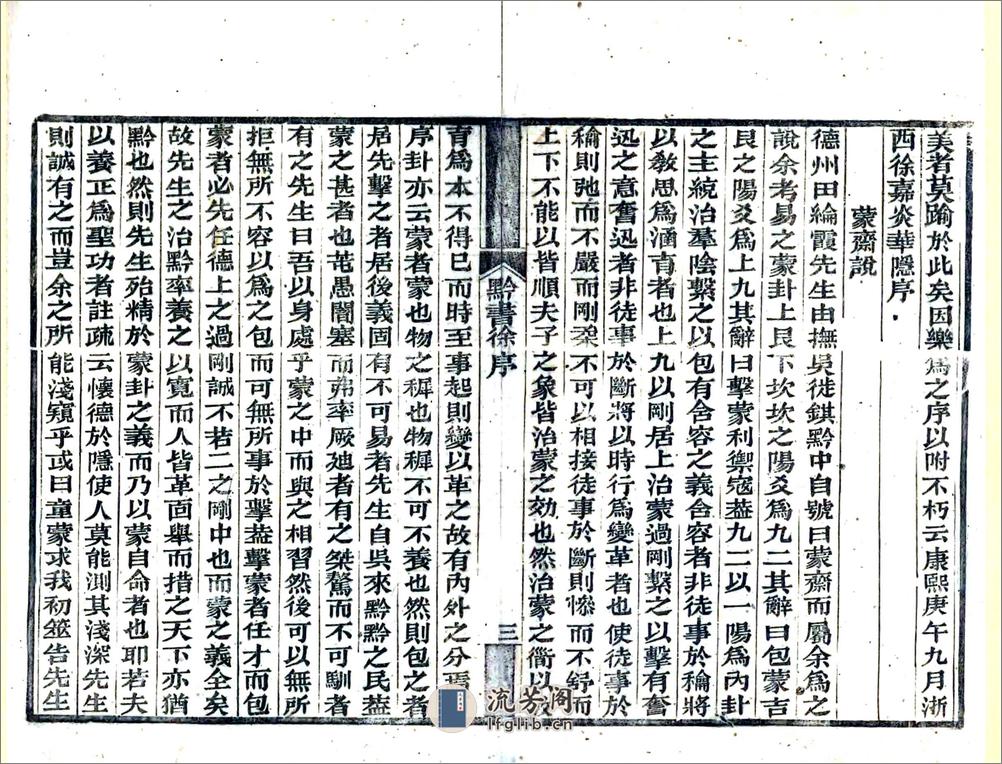 美者莫踰於此矣因樂爲之序以附不朽云康熙庚午九月浙
西徐嘉炎華隱序
蒙齋說
德州田綸霞先生由撫吳徙鎮黔中自號曰蒙齋而屬余爲之
說余考易之蒙卦上艮下坎坎之陽爻爲九二其辭曰包蒙吉
艮之陽爻爲上九其辭曰擊蒙利禦寇葢九二以一陽爲內卦
之主統治羣陰繫之以包有含容之義含容者非徒事於穪將
以敎思爲涵育者也上九以剛居上治蒙過剛繫之以擊有奮
迅之意奮迅者非徒事於斷將以時行爲變革者也使徒事於
穪則弛而不嚴而剛柔不可以相接徒事於斷則慘而不舒而
上下不能以皆順夫子之象皆治蒙之効也然治蒙之衟以
黔書徐序
三
育爲本不得已而時至事起則變以革之故有內外之分焉
序卦亦云蒙者蒙也物之穉也物穉不可不養也然則包之者
居先擊之者居後義固有不可易者先生自吳來黔黔之民葢
蒙之甚者也芚愚闇塞而弗率厥廸者有之桀驁而不可馴者
有之先生曰吾以身處乎蒙之中而與之相習然後可以無所
拒無所不容以爲之包而可無所事於擊葢擊蒙者任才而包
蒙者必先任德上之過剛誠不若二之剛中也而蒙之義全矣
故先生之治黔率養之以寬而人皆革面舉而措之天下亦猶
黔也然則先生殆精於蒙卦之義而乃以蒙自命者也耶若夫
以養正爲聖功者註疏云懷德於隱使人莫能測其淺深先生
則誠有之而豈余之所能淺窺乎或曰童蒙求我初筮告先生
流芳阁
lfglib.cn